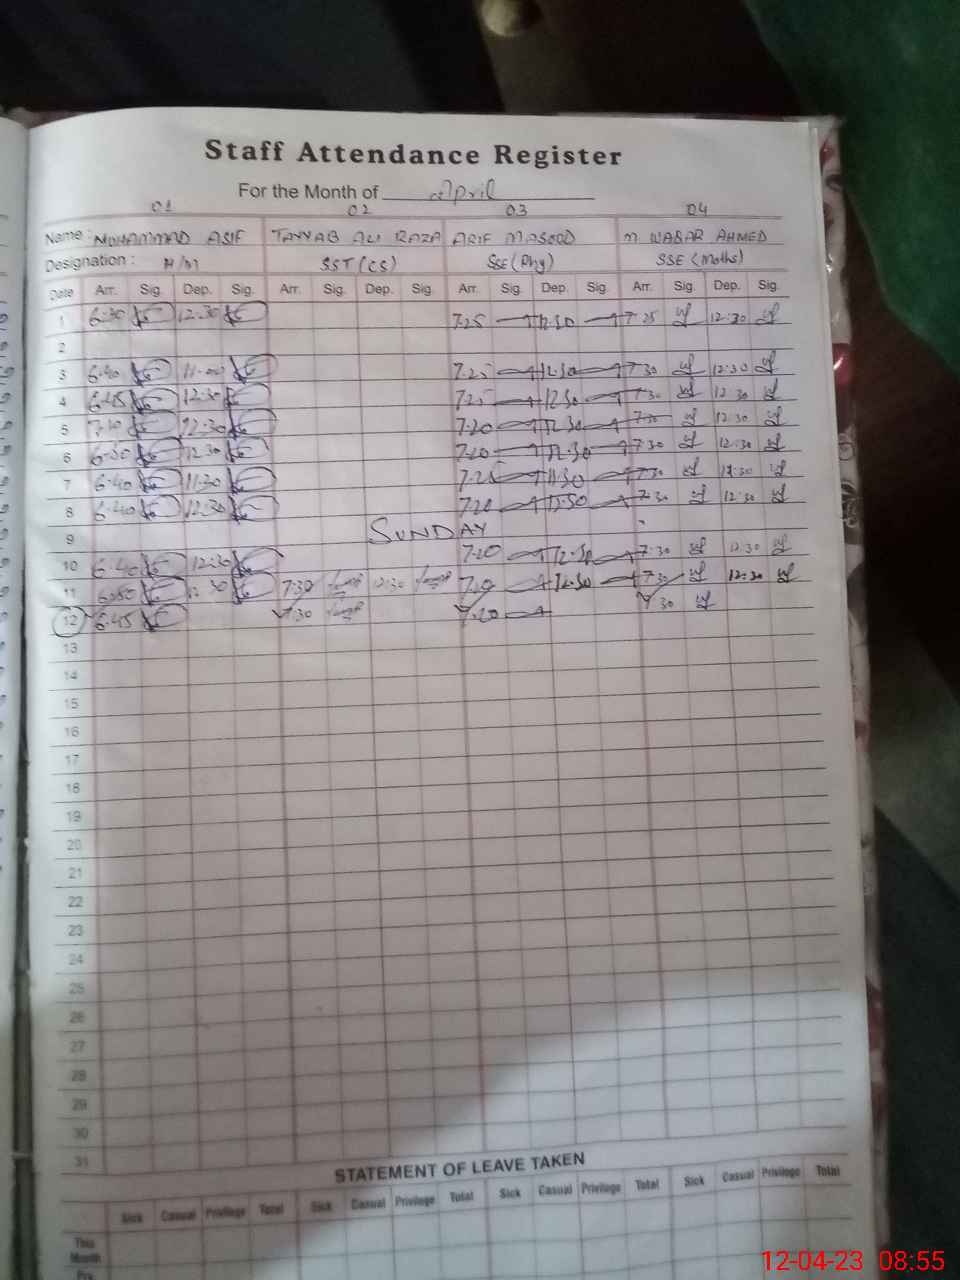 Staff Attendance Register
For the Month of April
01 02 03 04
Name : MUHAMMAD ASIF TAYYAB ALI RAZA ARIF MASOOD M WAQAR AHMED
Designation : H/M SST (CS) SSE (Phy) SSE (Maths)
Date Arr. Sig. Dep. Sig. Arr. Sig. Dep. Sig. Arr. Sig. Dep. Sig. Arr. Sig. Dep. Sig.
1 6.30 12.30 7.25 12.30 7 25 12:30
2
3 6.40 11.00 7.25 12.30 7 30 12:30
4 6.45 12.30 7.25 12.30 7.30 12 30
5 7.10 12.30 7.20 12.30 7.30 12:30
6 6.30 12.30 7.20 12.30 7.30 12:30
7 6.40 11.30 7.25 11.30 7.30
8 6.40 12.30 7.20 12.30 7.30 12:30
9 SUNDAY
10 6.40 12.30 7.20 12.30 7.30 12:30
11 30 7:30 12:30 7.20 12.30 7.30 12:30
12 6.45 7.30 7.20 7 30
13
14
15
16
17
18
19
20
21
22
23
24
25
26
27
28
29
30
31
STATEMENT OF LEAVE TAKEN
Sick Casual Privilege Total Sick Casual Privilege Total Sick Casual Privilege Total Sick Casual Privilege Total
This
Month
Pre
12-04-23 08:55